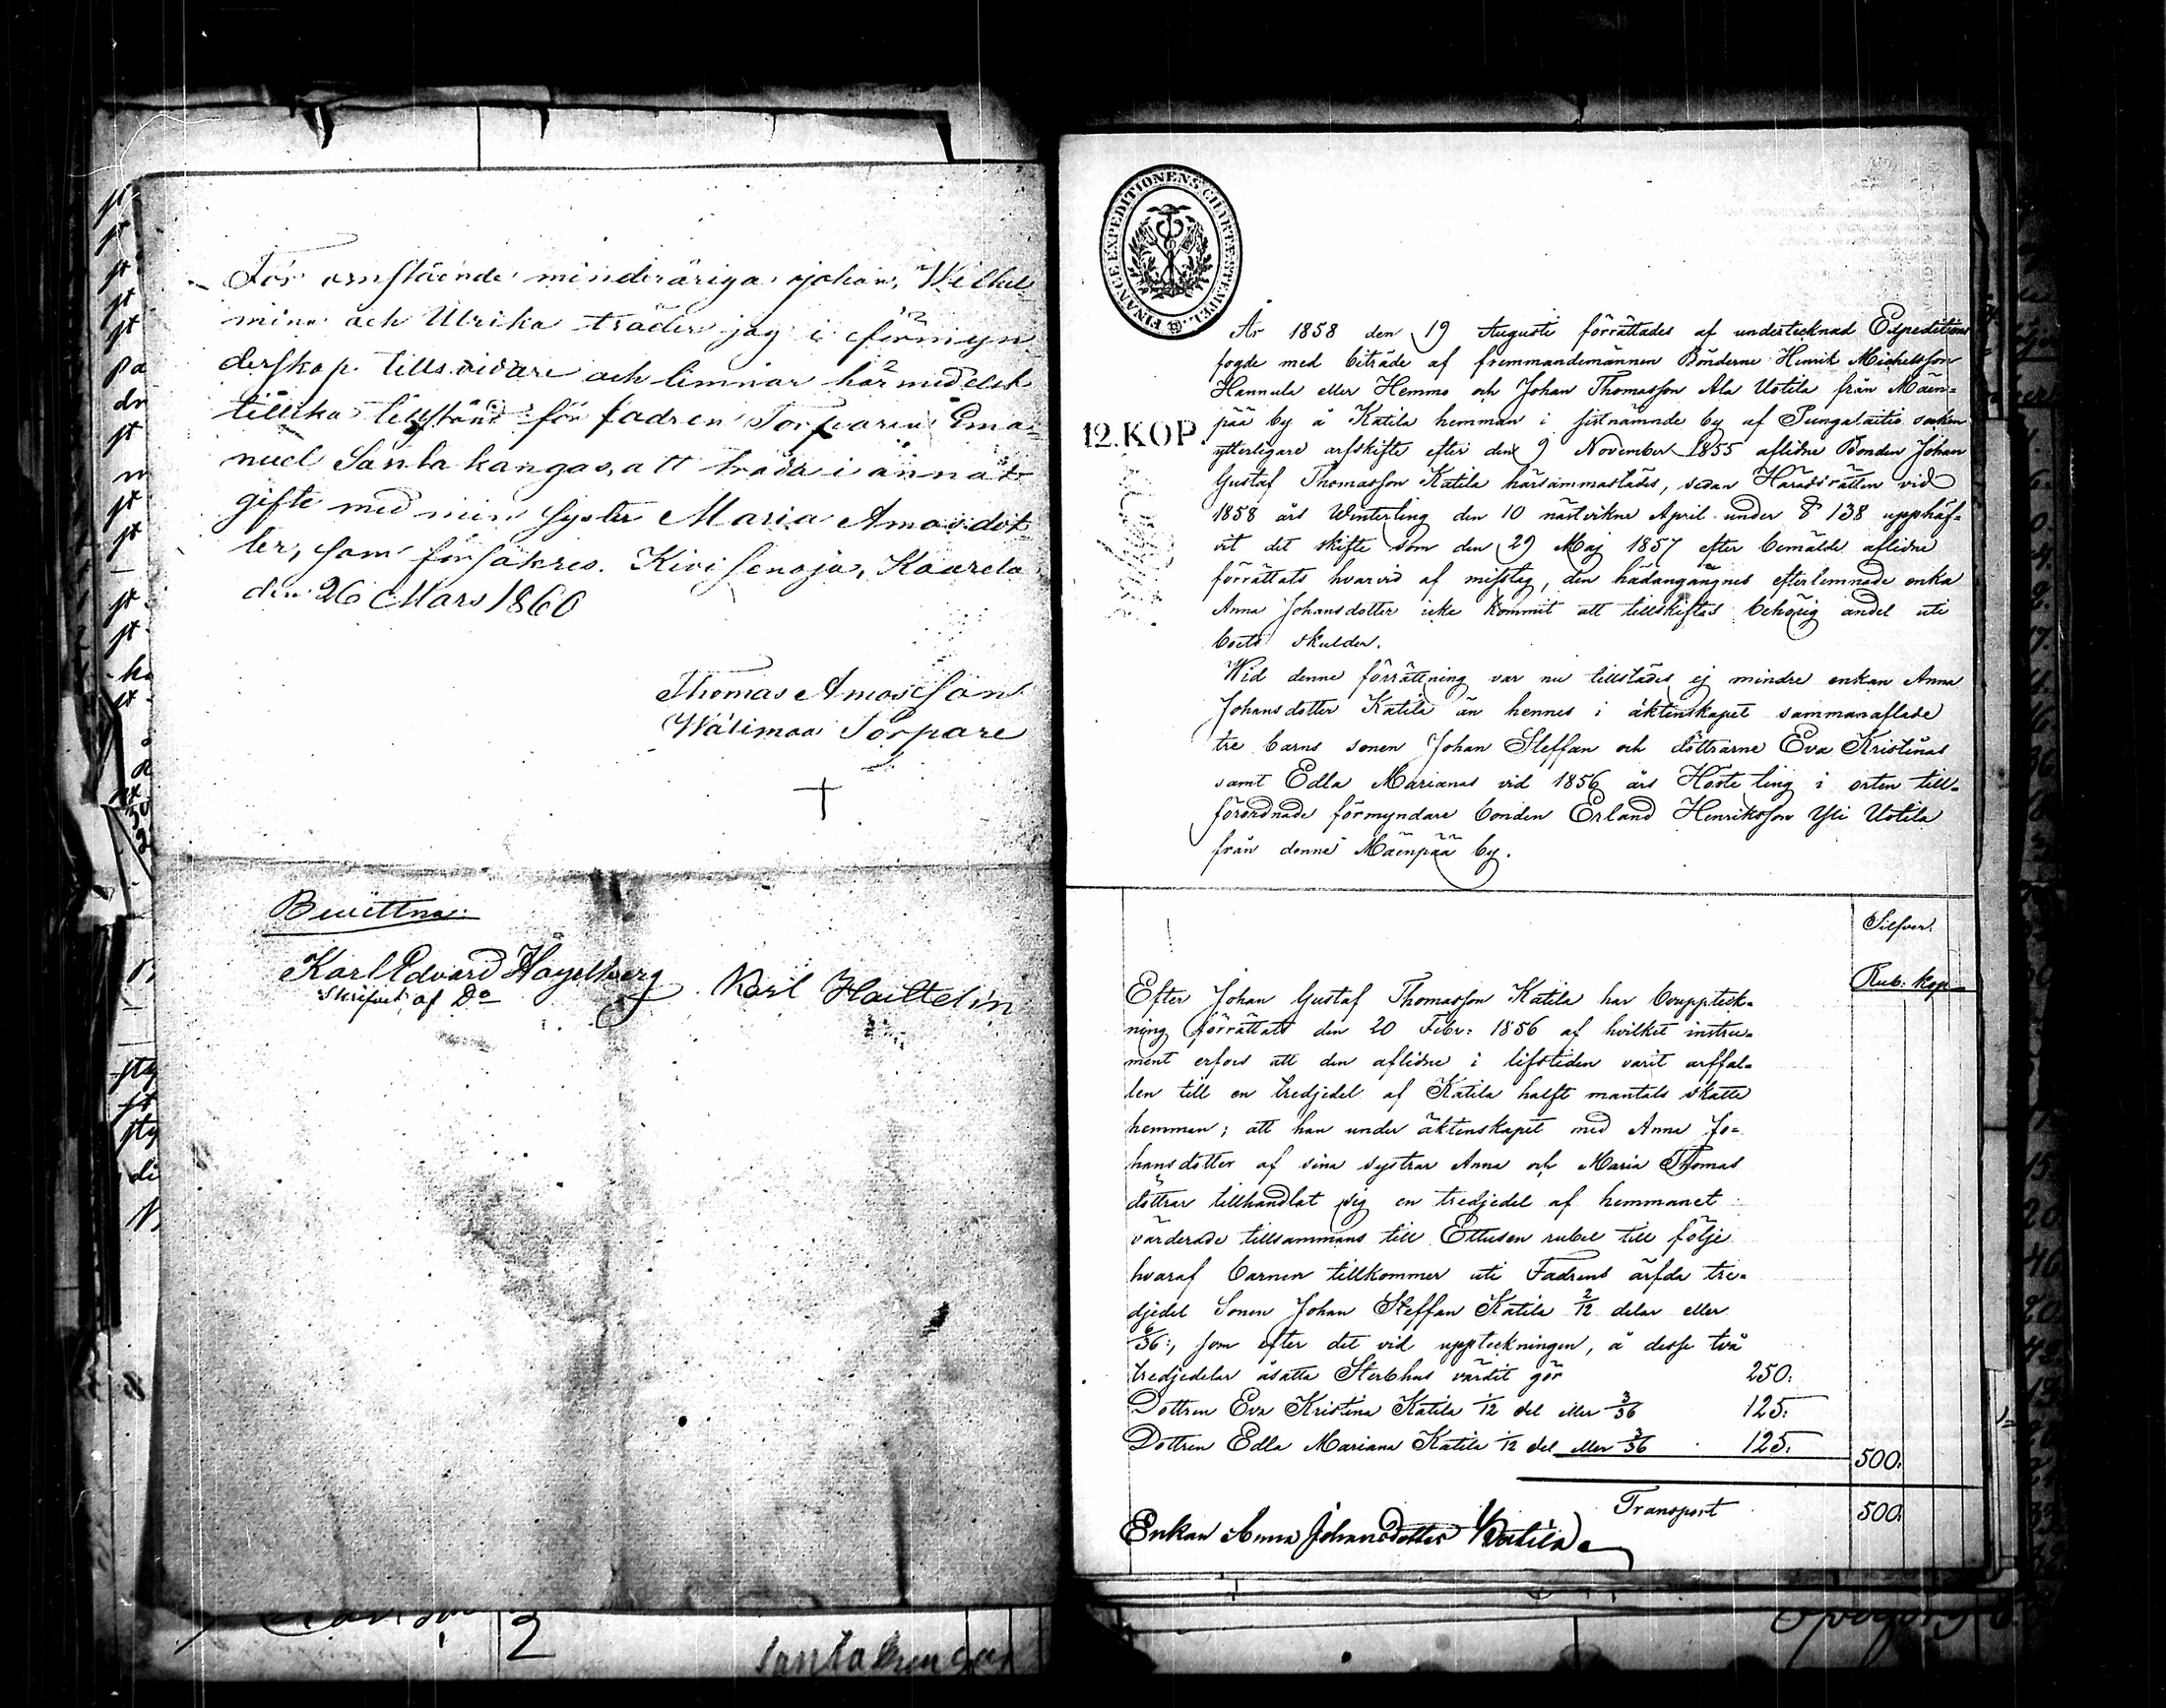 För omstående minderåriga Johan, Wilhel-
mina och Ulrika träder jag i förmyn
derskap tillsvidare och lemnar härmedelst
tillika tillstånd för fadren Torparen Ema-
nuel Santakangas, att träda i annat
gifte med min syster Maria Amosdot
ter, som försäkres. Kivisenoja, Kaarela
den 26 Mars 1860
Thomas Amosson
Wälimaa Torpare
Bewittna:
Karl Edvard Hagelberg
Skrifvet af Do
Karl Haittelin
2
Santakangas
FINANCE EXPEDITIONENS CHARTÆ STEMPEL
12. KOP.
År 1858 den 19 Augusti förrättades af undertecknad Expeditions
fogde med biträde af fremmandemännen Bönderne Henrik Michelsson
Hannula eller Hemmo och Johan Thomasson Ala Uotila från Mäen-
pää by å Katila hemman i sistnämnde by af Pungalaitio socken
ytterligare arfskifte efter den 9 November 1855 aflidne Bonden Johan
Gustaf Thomasson Katila härsammastädes, sedan Häradsrätten vid
1858 års Winterting den 10 nästvikne April under § 138 upphäf-
vit det skifte som den 29 Maj 1857 efter bemälde aflidne
förrättats hvarvid af misstag, den hädangångnes efterlemnade enka
Anna Johansdotter icke kommit att tillskiftas behörig andel uti
boets skulder.
Wid denne förrättning var nu tillstädes ej mindre enkan Anna
Johansdotter Katila än hennes i äktenskapet sammanaflade
tre barns sonen Johan Steffan och döttrarne Eva Kristinas
samt Edla Marianas vid 1856 års Höste ting i orten till-
förordnade förmyndare bonden Erland Henriksson Yli Uotila
från denne Mäenpää by.
Silfver.
Rub. kop.
Efter Johan Gustaf Thomasson Katila har bouppteck-
ning förrättats den 20 Febr: 1856 af hvilket instru-
ment erfors att den aflidne i lifstiden varit arffal-
len till en tredjedel af Katila halft mantals skatte
hemman; att han under äktenskapet med Anna Jo-
hansdotter af sina systrar Anna och Maria Thomas
döttrar tillhandlat sig en tredjedel af hemmanet
värderade tillsammans till Ettusen rubel till följe
hvaraf barnen tillkommer uti Fadrens ärfda tre-
djedel Sonen Johan Steffan Katila 2/12 delar eller
6/36:, som efter det vid uppteckningen, å desse två
tredjedelar åsatta Sterbhus värdet gör 250:
Dottren Eva Kristina Katila 1/12 del eller 3/36 125:
Dottren Edla Mariana Katila 1/12 del eller 3/36 125: 500:
Transport 500:
Enkan Anna Johansdotter Katila